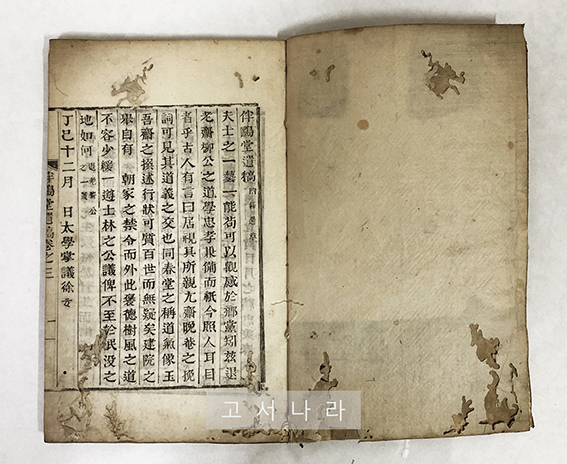 伴鷗堂遺稿
夫士之一藝一能苟可以觀感於鄕黨矧玆退
老齋柳公之道學忠孝兼備而祗今照人耳目
者乎古人有言曰居視其所親尤齋晩巷之挽
詞可見其道義之交也同春堂之稱道氣像玉
吾齋之操述行狀可質百世而無疑矣建院之
擧自有 朝家之禁令而外此褒德樹風之道
不容少緩一邊士林之公議俾不至於泯沒之
地如何
丁巳十二月 日太學掌議徐
伴鷗堂遺稿卷之三
고서나라